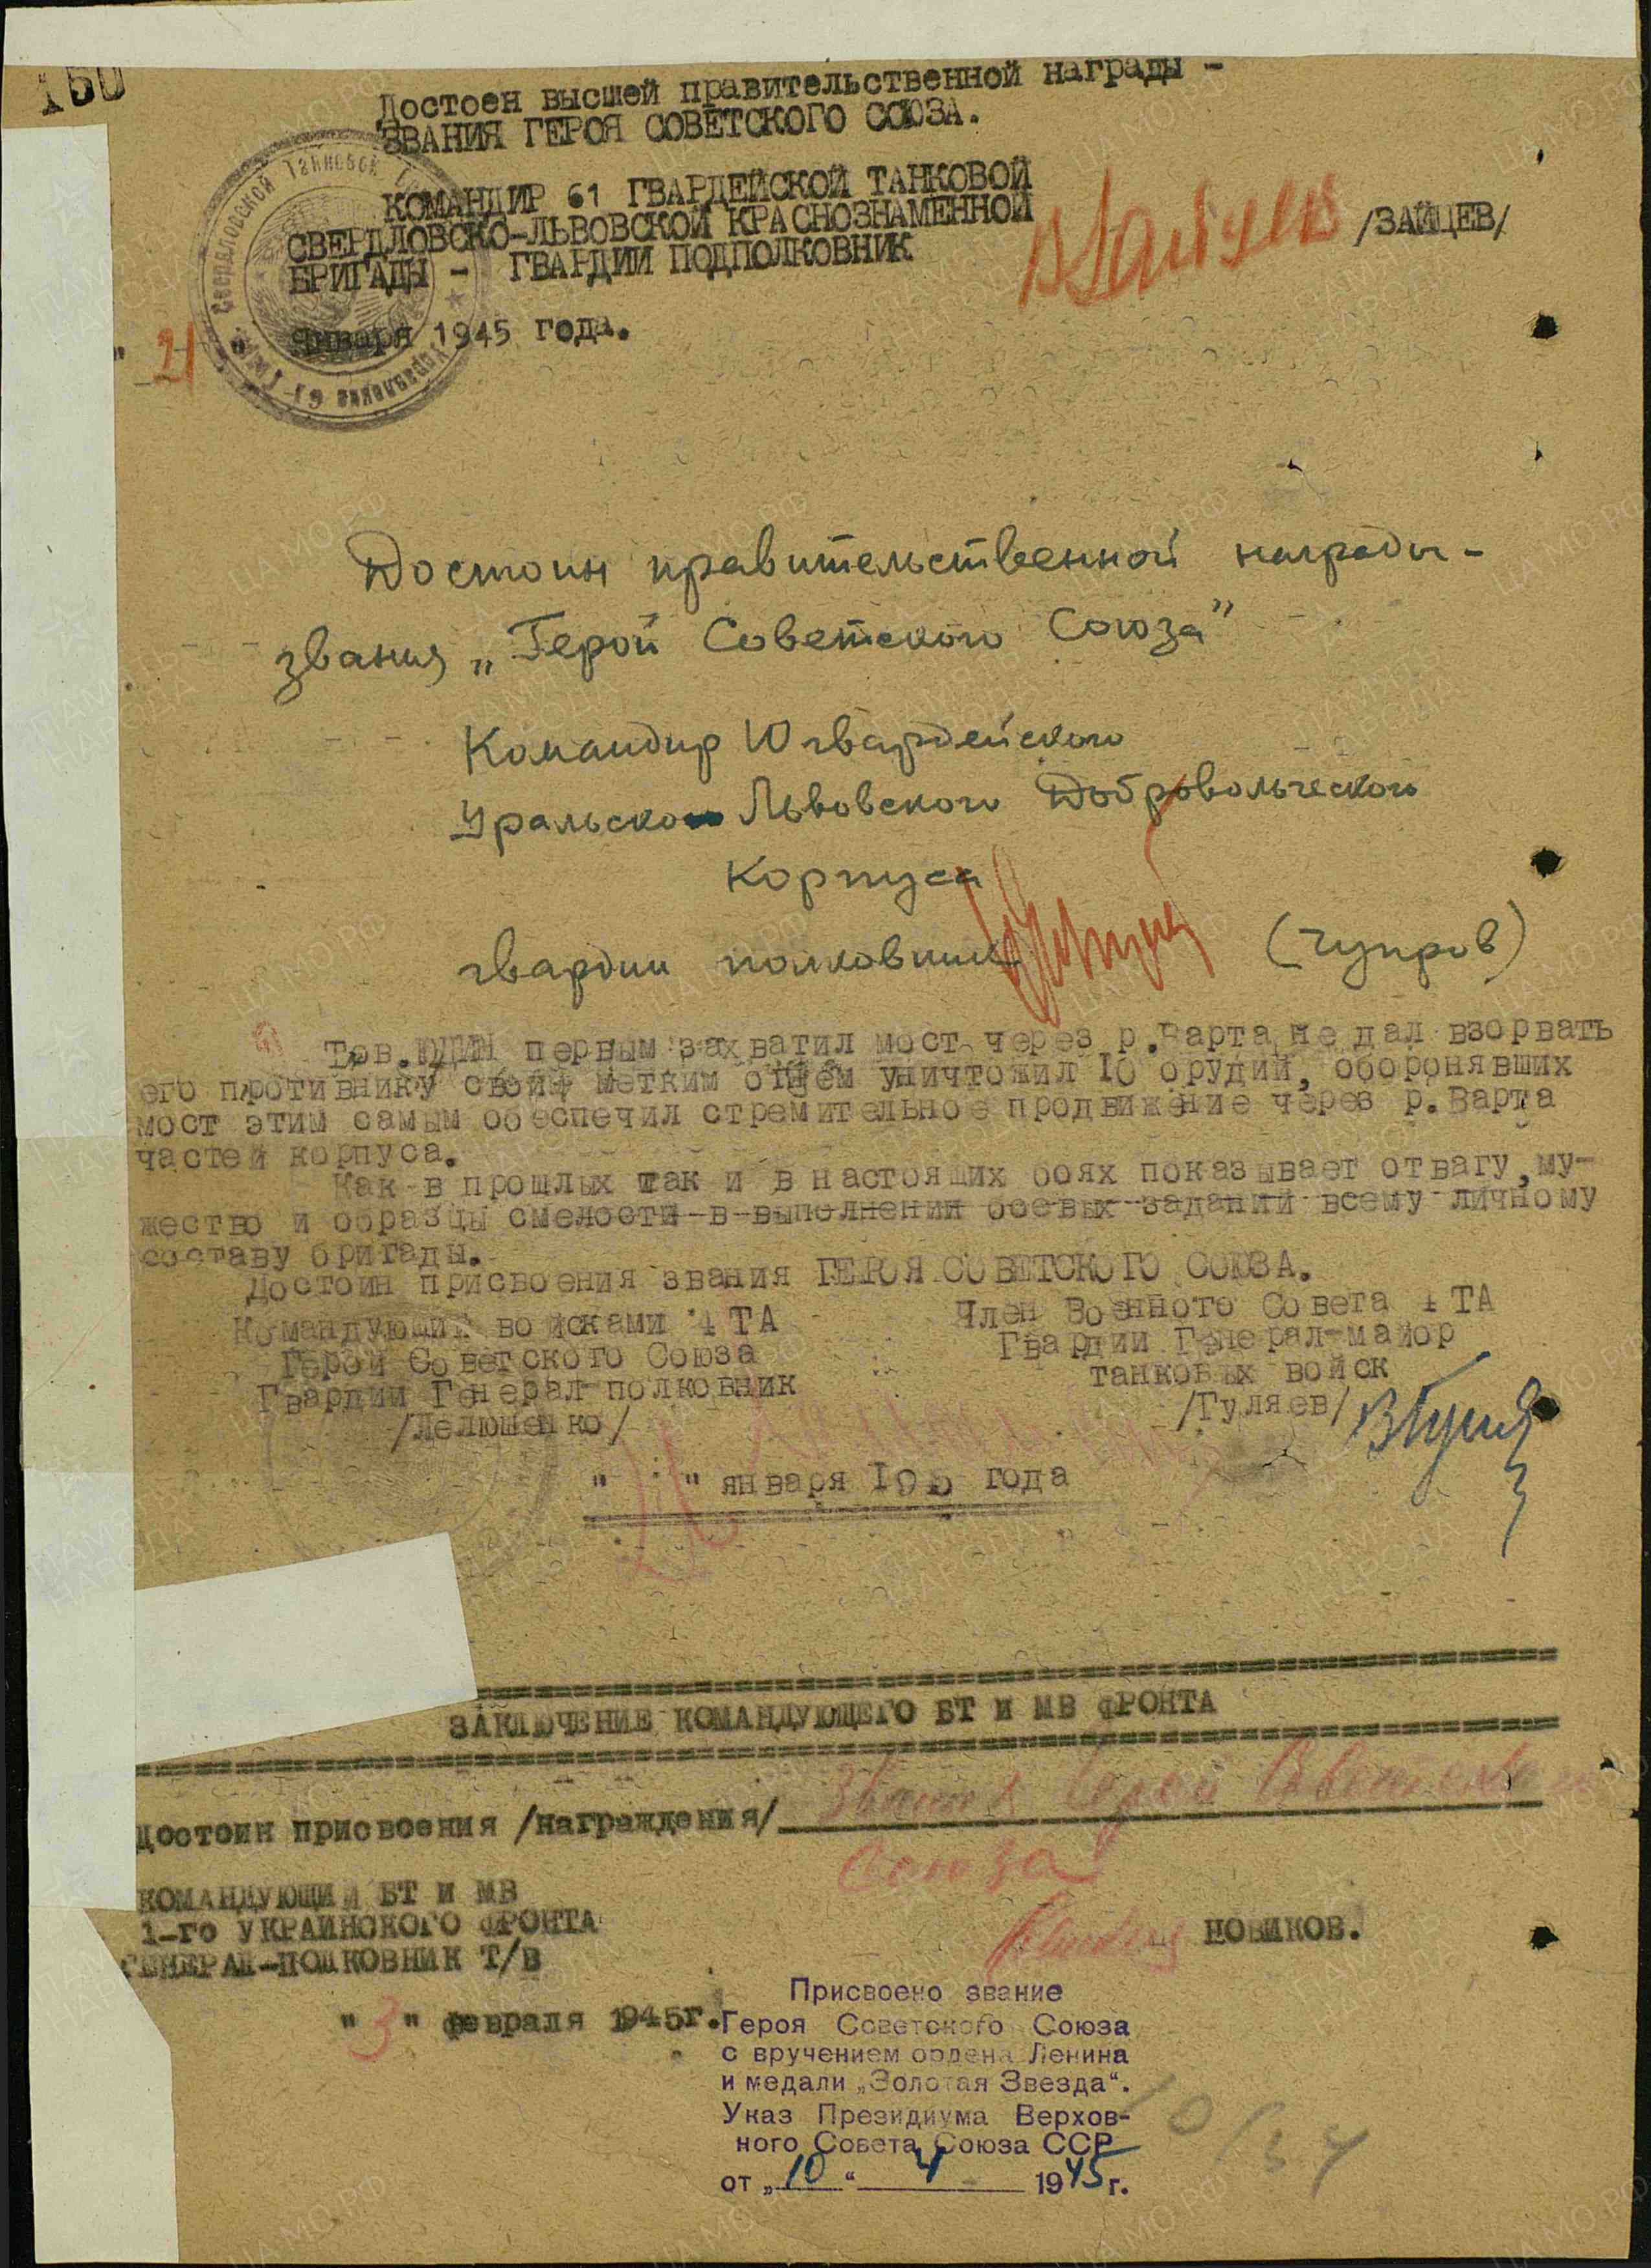 150
Достоен высшей правительственной награды -
ЗВАНИЯ ГЕРОЯ СОВЕТСКОГО СОЮЗА.
КОМАНДИР 61 ГВАРДЕЙСКОЙ ТАНКОВОЙ
СВЕРДЛОВСКО-ЛЬВОВСКОЙ КРАСНОЗНАМЕННОЙ
БРИГАДЫ - ГВАРДИИ ПОДПОЛКОВНИК
/ЗАЙЦЕВ/
" 21 " января 1945 года.
Достоин правительственной награды -
звания „Герой Советского Союза"
Командир 10 гвардейского
Уральско Львовского Добровольческого
Корпуса
гвардии полковник (Чупров)
Тов. ЮДИН первым захватил мост через р.Варта, не дал взорвать
его противнику своим метким огнем уничтожил 10 орудий, оборонявших
мост этим самым обеспечил стремительное продвижение через р.Варта
частей корпуса.
Как в прошлых так и в настоящих боях показывает отвагу, му-
жество и образцы смелости в выполнении боевых заданий всему личному
составу бригады.
Достоин присвоения звания ГЕРОЯ СОВЕТСКОГО СОЮЗА.
Командующий войсками 4 ТА
Герой Советского Союза
Гвардии Генерал-полковник
/Лелюшенко/
Член Военного Совета 4 ТА
Гвардии Генерал-майор
танковых войск
/Гуляев/
" " января 195 года
ЗАКЛЮЧЕНИЕ КОМАНДУЮЩЕГО БТ И МВ ФРОНТА
достоин присвоения /награждения/ звания Герой Советского
Союза
КОМАНДУЮЩИЙ БТ И МВ
1-го УКРАИНСКОГО ФРОНТА
ГЕНЕРАЛ-ПОЛКОВНИК Т/В
НОВИКОВ.
" 3 " февраля 1945г.
Присвоено звание
Героя Советского Союза
с вручением ордена Ленина
и медали „Золотая Звезда".
Указ Президиума Верхов-
ного Совета Союза ССР
от „10" 4 1945г.